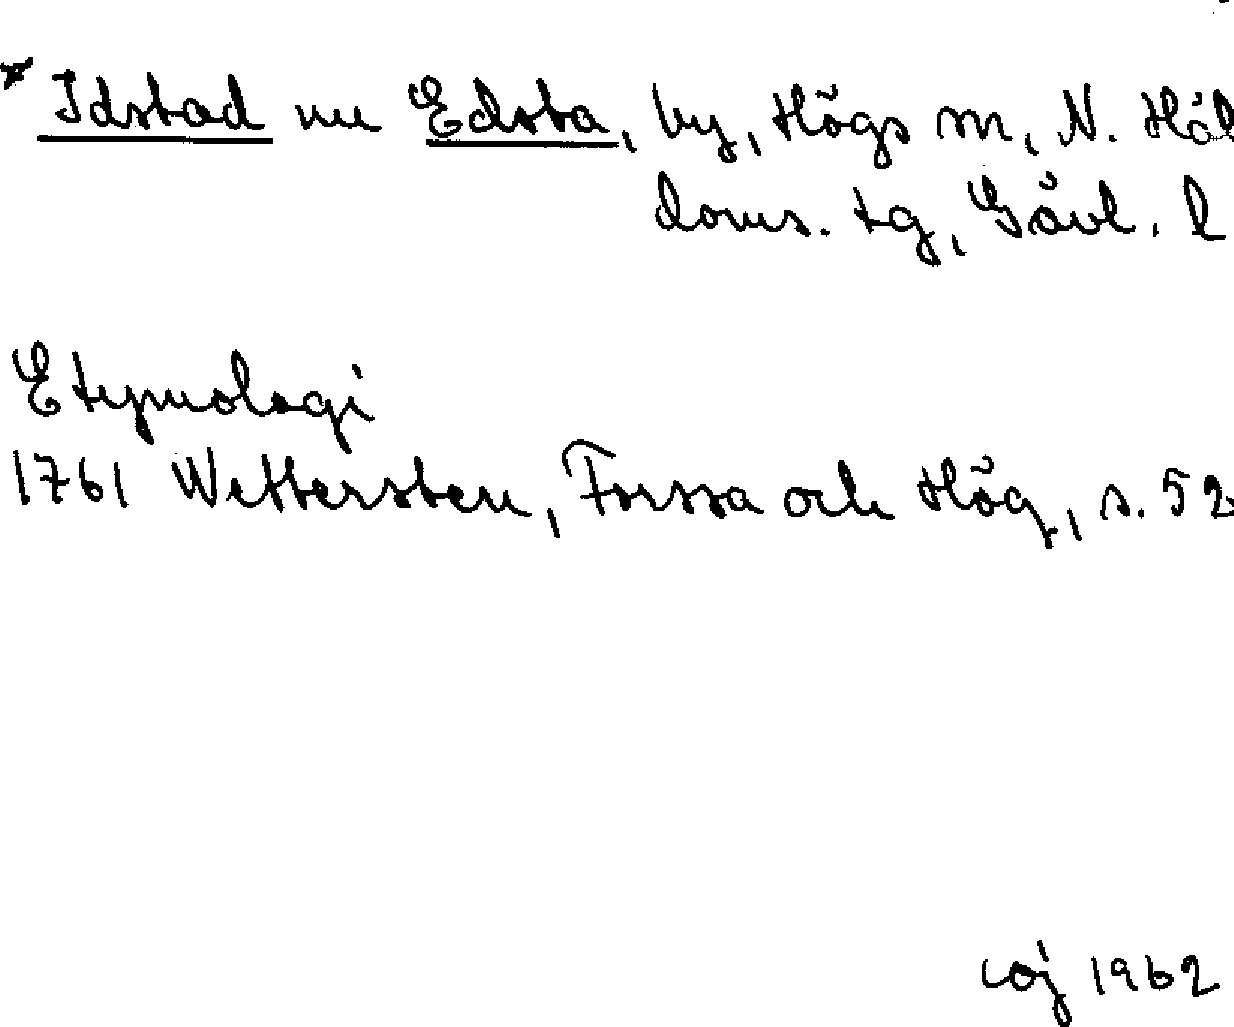 * Idstad nu Edsta, by, Högs sn, N. Häl
doms. tg, Gävl. l
Etymologi
1761 Wettersten, Forssa och Hög, s. 52
coj 1962